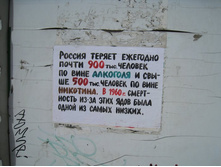 РОССИЯ ТЕРЯЕТ ЕЖЕГОДНО
ПОЧТИ 900 ТЫС. ЧЕЛОВЕК
ПО ВИНЕ АЛКОГОЛЯ И СВЫ-
ШЕ 500 ТЫС. ЧЕЛОВЕК ПО ВИНЕ
НИКОТИНА. В 1960г. СМЕРТ-
НОСТЬ ИЗ-ЗА ЭТИХ ЯДОВ БЫЛА
ОДНОЙ ИЗ САМЫХ НИЗКИХ.